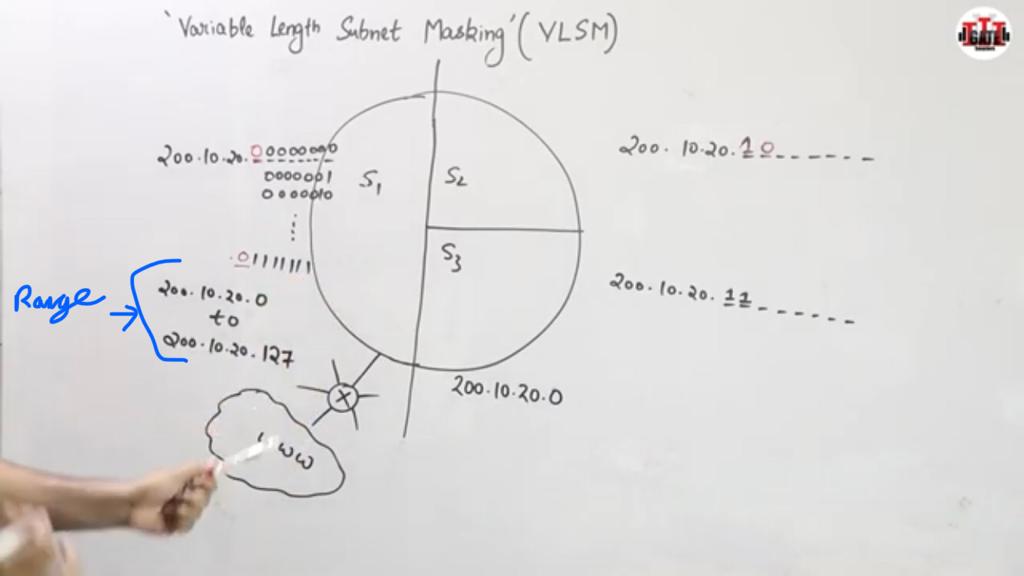 'Variable Length Subnet Masking' (VLSM)
GATE
200.10.20.00000000
0000001
0000010
.01111111
Range
200.10.20.0
to
200.10.20.127
S1
S2
S3
200.10.20.0
200.10.20.10------
200.10.20.11------